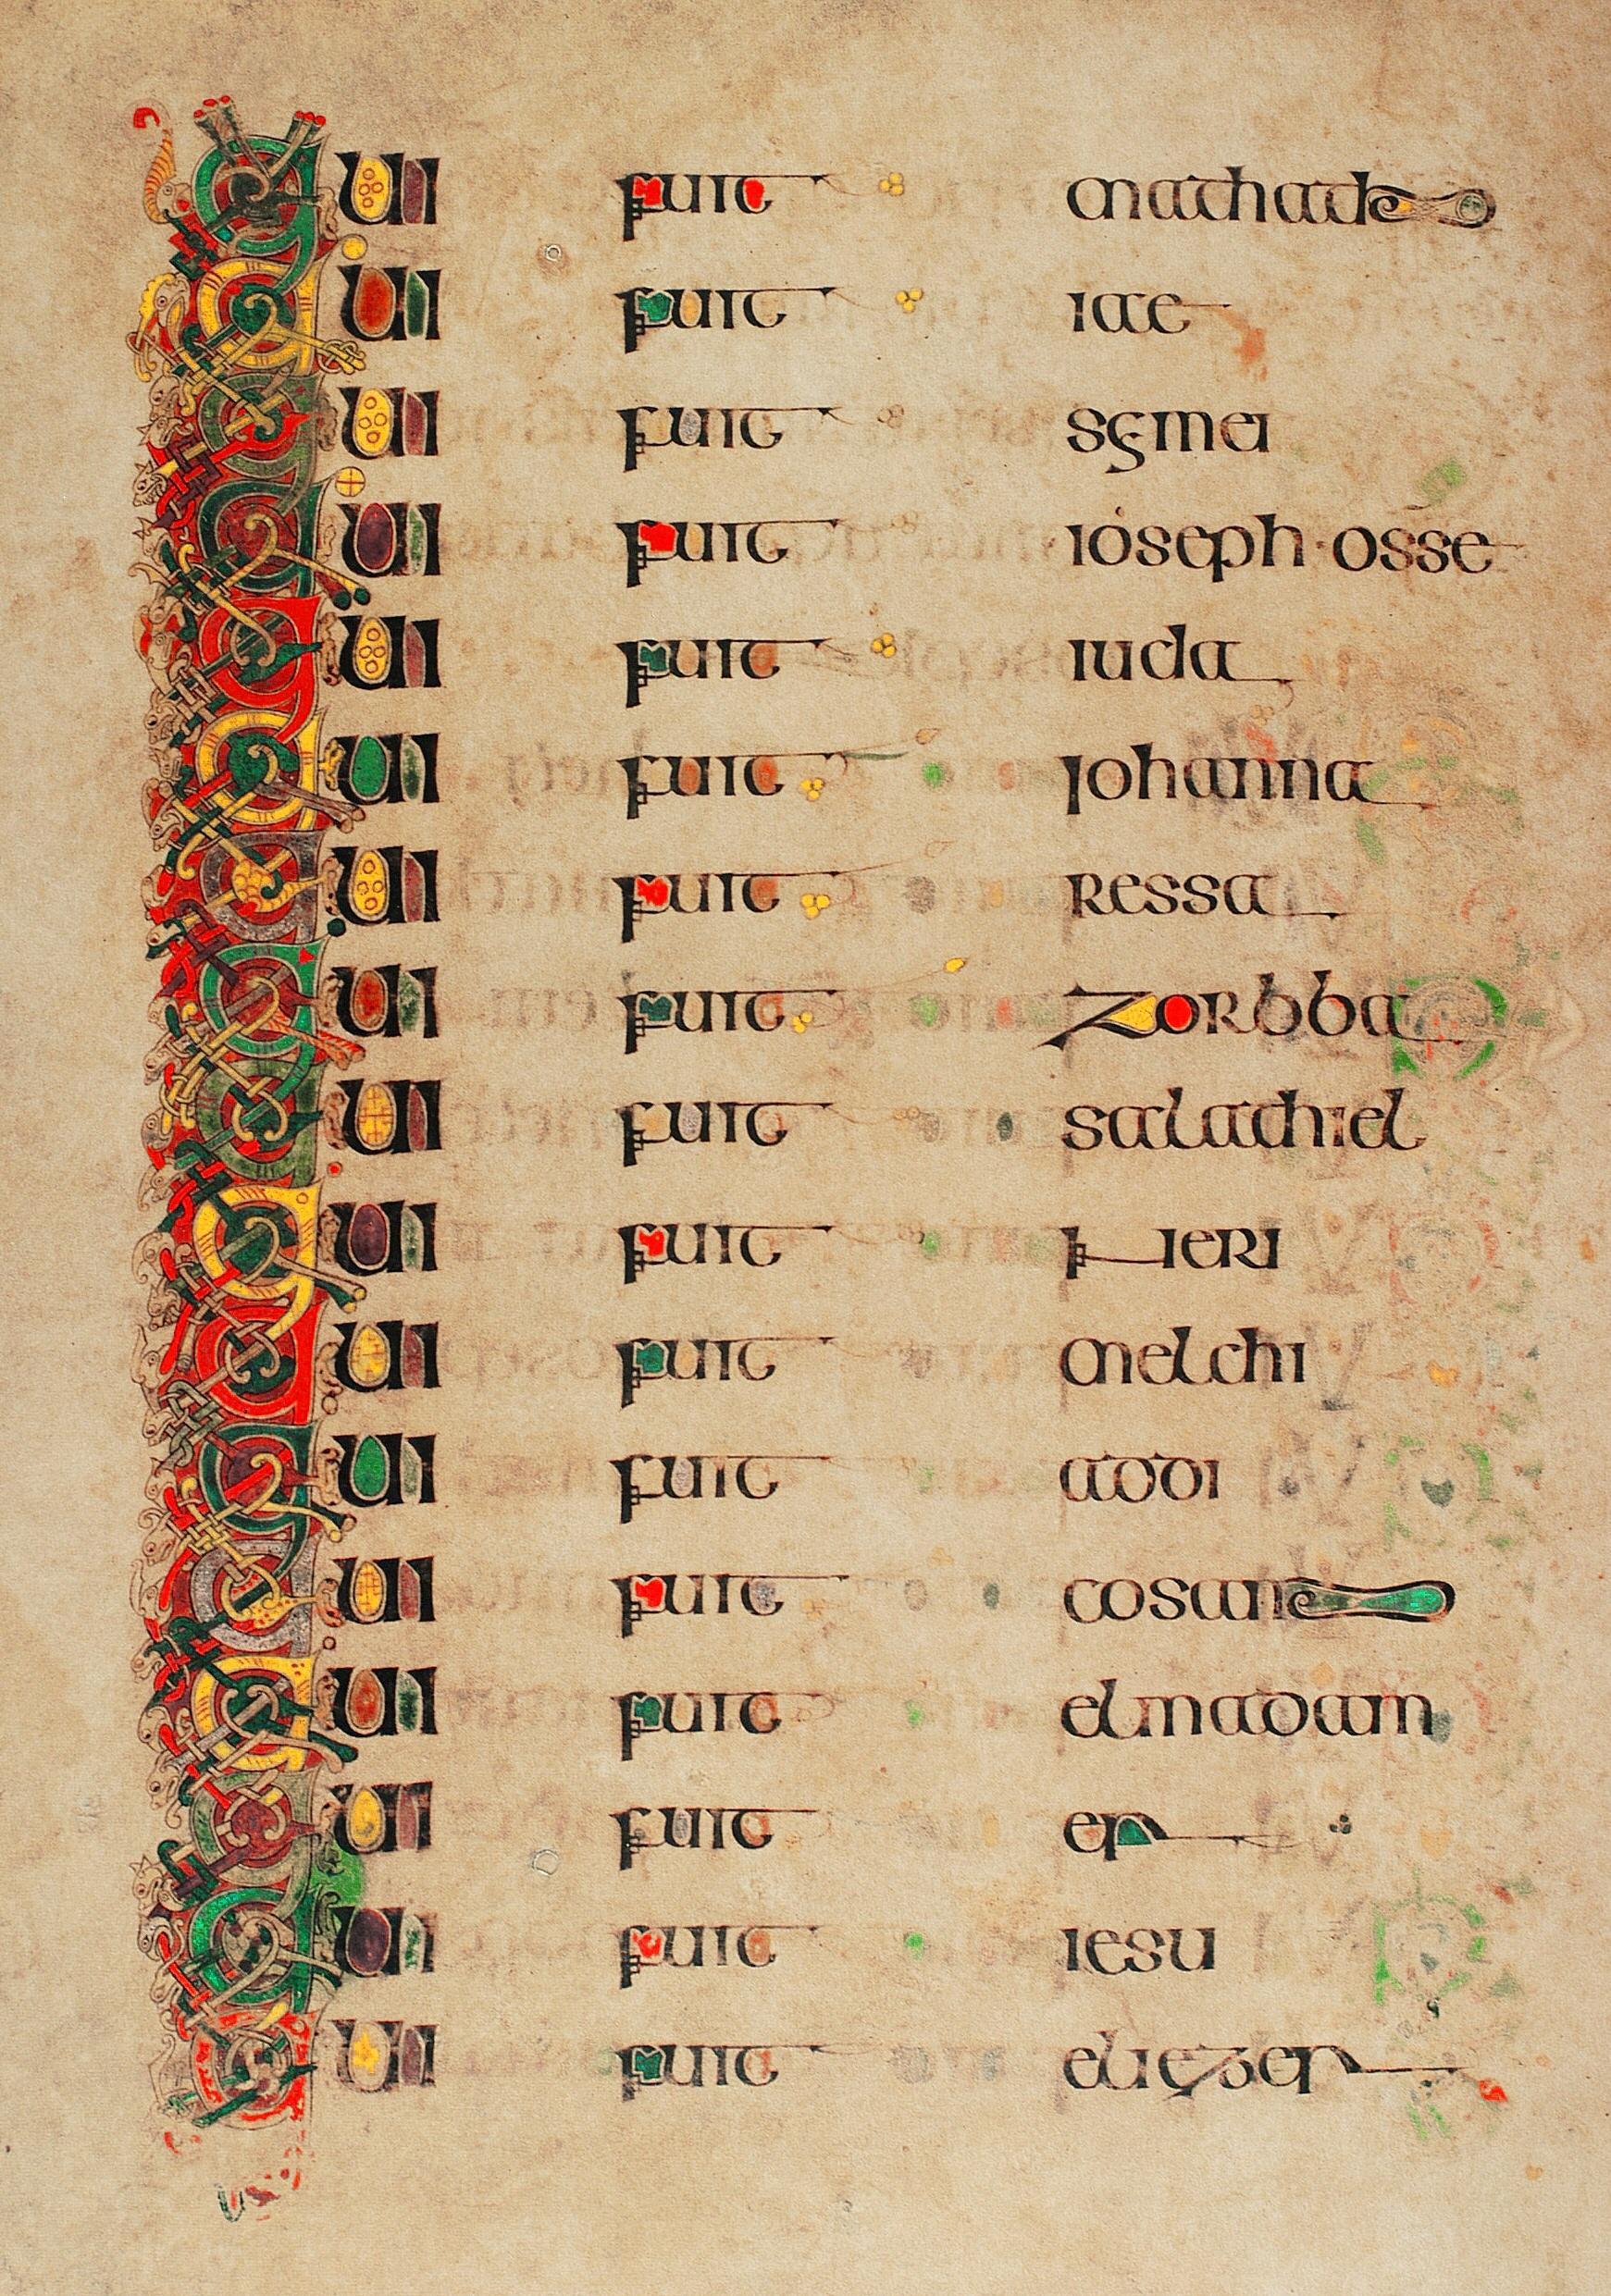 QUI fuit mathath
QUI fuit iae
QUI fuit sęmei
QUI fuit ioseph · osse
QUI fuit iuda
QUI fuit iohanna
QUI fuit ressa
QUI fuit zorbba
QUI fuit salathiel
QUI fuit neri
QUI fuit melchi
QUI fuit addi
QUI fuit cosam
QUI fuit elmadam
QUI fuit er
QUI fuit iesu
QUI fuit elięzer